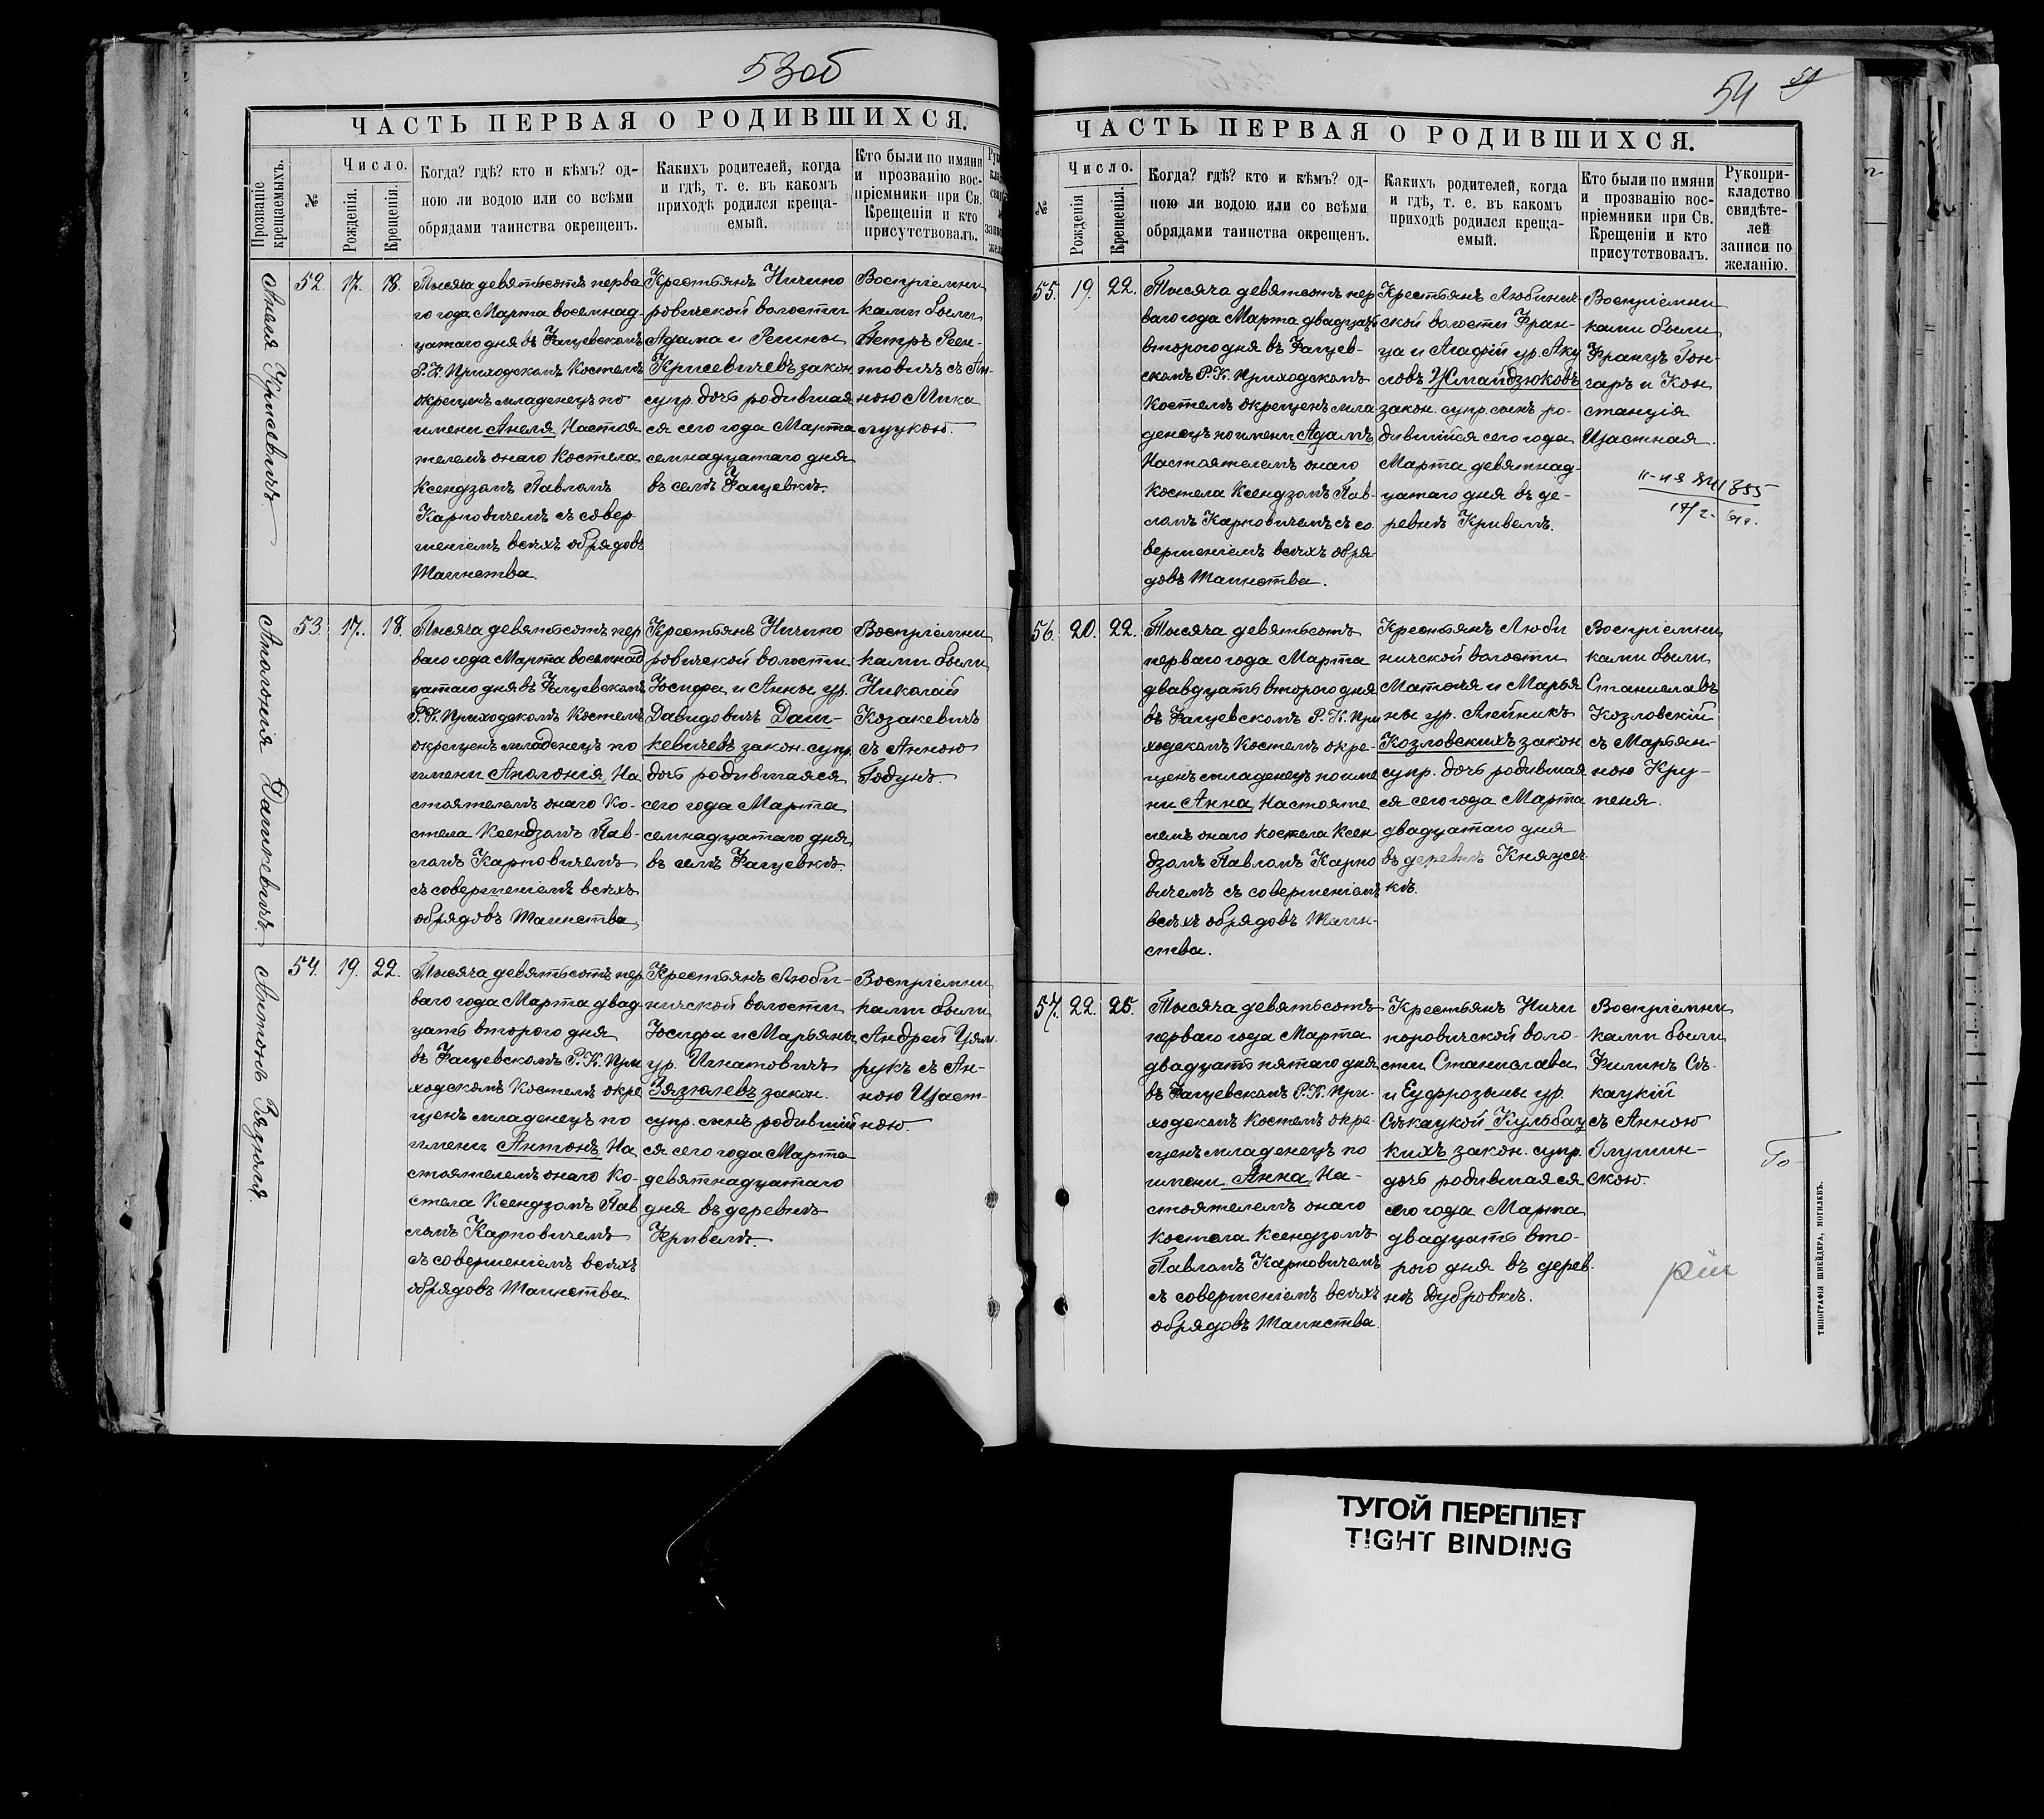 53 об
ЧАСТЬ ПЕРВАЯ О РОДИВШИХСЯ.
Прозваніе крещаемыхъ.
№
Число.
Рожденія.
Крещенія.
Когда? гдѣ? кто и кѣмъ? од-
ною ли водою или со всѣми
обрядами таинства окрещенъ.
Какихъ родителей, когда
и гдѣ, т. е. въ какомъ
приходѣ родился креща-
емый.
Кто были по имяни
и прозванію вос-
пріемники при Св.
Крещеніи и кто
присутствовалъ.
Анеля
52. 17. 18.
Тысяча девятьсотъ перва
го года Марта восемнад-
цатаго дня въ Фащевскомъ
Р. К. Приходскомъ Костелѣ
окрещенъ младенецъ по
имени Анеля Настоя
телемъ онаго Костела
Ксендзомъ Павломъ
Карповичемъ съ совер
шеніемъ всѣхъ обрядовъ
Таинства.
Крестьянъ Ничипо
ровичской волости
Адама и Регины
Крисевичевъ закон
супр. дочь родившая
ся сего года Марта
семнадцатаго дня
въ селѣ Фащевкѣ.
Воспріемни
ками были
Петръ
съ Ан-
ною Мика
луцкою.
Апололонія Дашкевичъ.
53. 17. 18.
Тысяча девятьсотъ пер
ваго года Марта восемнад
цатаго дня въ Фащевскомъ
Р. К. Приходскомъ Костелѣ
окрещенъ младенецъ по
имени Аполонія На
стоятелемъ онаго Ко-
стела Ксендзомъ Пав-
ломъ Карповичемъ
съ совершеніемъ всѣхъ
обрядовъ Таинства
Крестьянъ Ничипо
ровичской волости
Іосифа и Анны ур.
Давидовичъ Даш-
кевичевъ закон. супр.
дочь родившаяся
сего года Марта
семнадцатаго дня
въ селѣ Фащевкѣ.
Воспріемни
ками были
Николай
Козакевичъ
съ Анною
Годунъ
Антонъ Зязюля.
54. 19. 22.
Тысяча девятьсотъ пер
ваго года Марта двад-
цать второго дня
въ Фащевскомъ Р. К. При
ходскомъ Костелѣ окре
щенъ младенецъ по
имени Антонъ На
стоятелемъ онаго Ко-
стела Ксендзомъ Пав
ломъ Карповичемъ
съ совершеніемъ всѣхъ
обрядовъ Таинства.
Крестьянъ Люби-
ничской волости
Іосифа и Марьяны
ур. Игнатовичъ
Зязюлевъ закон.
супр. сынъ родившій
ся сего года Марта
девятнадцатаго
дня въ деревнѣ
Кривелѣ.
Воспріемни
ками были
Андрей
рукъ съ Ан-
ною Щаст-
ною.
54
ЧАСТЬ ПЕРВАЯ О РОДИВШИХСЯ.
№
Число.
Рожденія
Крещенія.
Когда? гдѣ? кто и кѣмъ? од-
ною ли водою или со всѣми
обрядами таинства окрещенъ.
Какихъ родителей, когда
и гдѣ, т. е. въ какомъ
приходѣ родился креща-
емый.
Кто были по имяни
и прозванію вос-
пріемники при Св.
Крещеніи и кто
присутствовалъ.
Рукопри-
кладство
свидѣте-
лей
записи по
желанію.
55. 19. 22.
Тысяча девятсотъ пер
ваго года Марта двадцать
второго дня въ Фащев-
скомъ Р. К. Приходскомъ
Костелѣ окрещенъ мла
денецъ по имени Адамъ
Настоятелемъ онаго
Костела Ксендзомъ Пав-
ломъ Карповичемъ съ со
вершеніемъ всѣхъ обря-
довъ Таинства.
Крестьянъ Любинич-
ской волости Фран-
ца и Агафіи ур. Аку
ловъ
закон. супр. сынъ ро-
дившійся сего года
Марта девятнад-
цатаго дня въ де-
ревнѣ Кривелѣ.
Воспріемни
ками были
Францъ Гон-
чаръ и Кон
станція
Щастная.
56. 20. 22.
Тысяча девятьсотъ
перваго года Марта
двавдцать второго дня
въ Фащевскомъ Р. К. При
ходскомъ Костелѣ окре-
щенъ младенецъ по име
ни Анна Настояте
лемъ онаго костела Ксен
дзомъ Павломъ Карпо
вичемъ съ совершеніемъ
всѣхъ обрядовъ Таин-
ства.
Крестьянъ Люби
ничской волости
Матвѣя и Марья
ны ур. Алейникъ
Козловскихъ закон
супр. дочь родившая
ся сего года Марта
двадцатаго дня
въ деревнѣ Княжеч
кѣ.
Воспріемни
ками были
Станиславъ
Козловскій
съ Марьян-
ною Кру-
пеня.
57. 22. 25.
Тысяча девятьсотъ
перваго года Марта
двадцать пятаго дня
въ Фащевскомъ Р. К. При-
ходскомъ Костелѣ окре-
щенъ младенецъ по
имени Анна На-
стоятелемъ онаго
костела Ксендзомъ
Павломъ Карповичемъ
съ совершеніемъ всѣхъ
обрядовъ Таинства.
Крестьянъ Ничи
поровичской воло-
сти Станислава
и Еуфрозыны ур.
Съкацкой Кульбац
кихъ закон. супр.
дочь родившаяся
сего года Марта
двадцать вто-
рого дня въ дерев-
нѣ Дубровкѣ.
Воспріемни
ками были
Филипъ Съ-
кацкій
съ Анною
Глушин-
скою.
ТИПОГРАФІЯ ШНЕЙДЕРА, МОГИЛЕВЪ.
ТУГОЙ ПЕРЕПЛЕТ
TIGHT BINDING